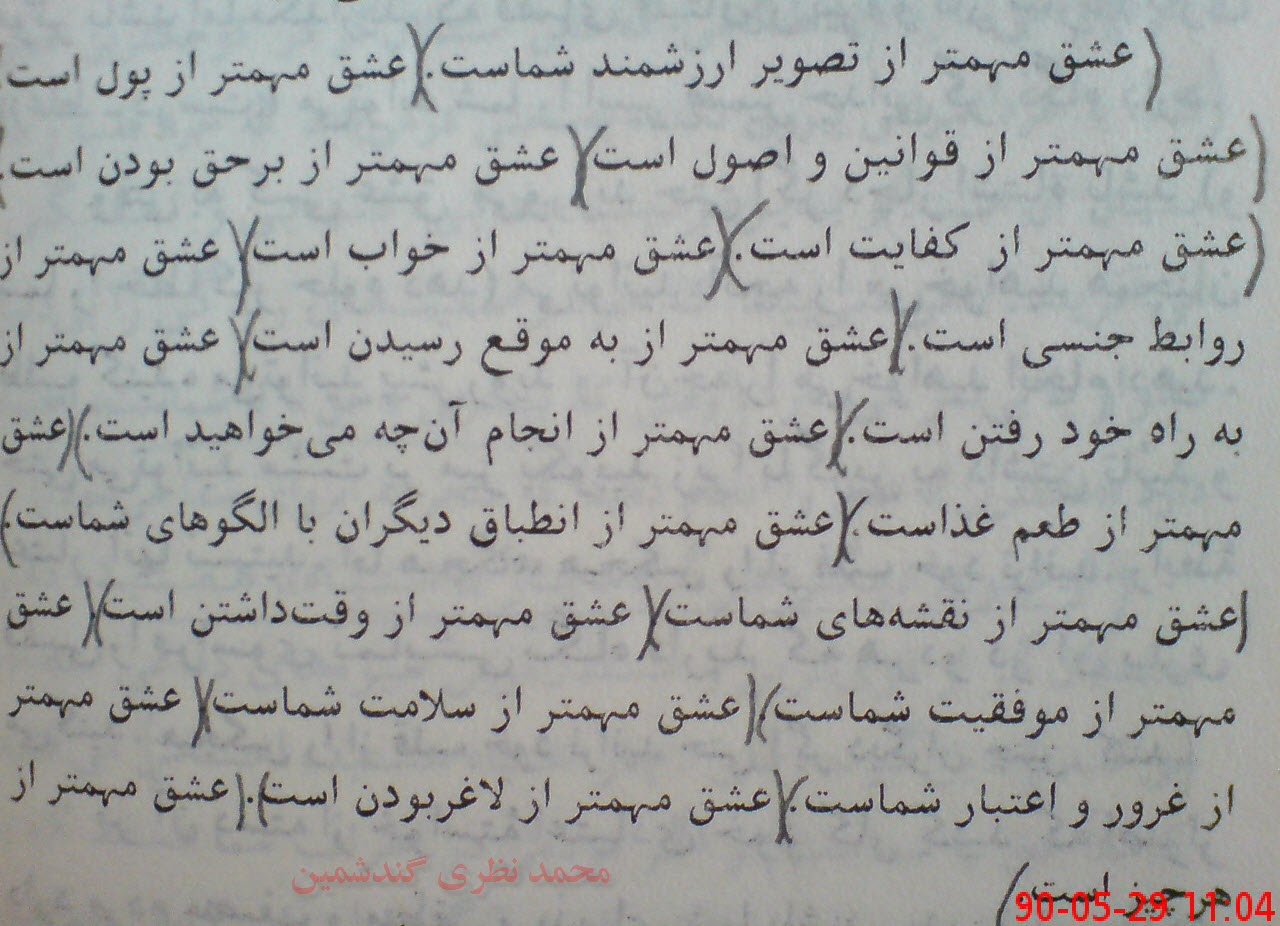 (عشق مهمتر از تصویر ارزشمند شماست.)(عشق مهمتر از پول است.)
(عشق مهمتر از قوانین و اصول است)(عشق مهمتر از برحق بودن است.)
(عشق مهمتر از کفایت است.)(عشق مهمتر از خواب است)(عشق مهمتر از
روابط جنسی است.)(عشق مهمتر از به موقع رسیدن است)(عشق مهمتر از
به راه خود رفتن است.)(عشق مهمتر از انجام آن‌چه می‌خواهید است.)(عشق
مهمتر از طعم غذاست.)(عشق مهمتر از انطباق دیگران با الگوهای شماست.)
(عشق مهمتر از نقشه‌های شماست)(عشق مهمتر از وقت‌داشتن است)(عشق
مهمتر از موفقیت شماست)(عشق مهمتر از سلامت شماست)(عشق مهمتر
از غرور و اعتبار شماست.)(عشق مهمتر از لاغربودن است).(عشق مهمتر از
هرچیز است.)
محمد نظری گندشمین
90-05-29 11:04